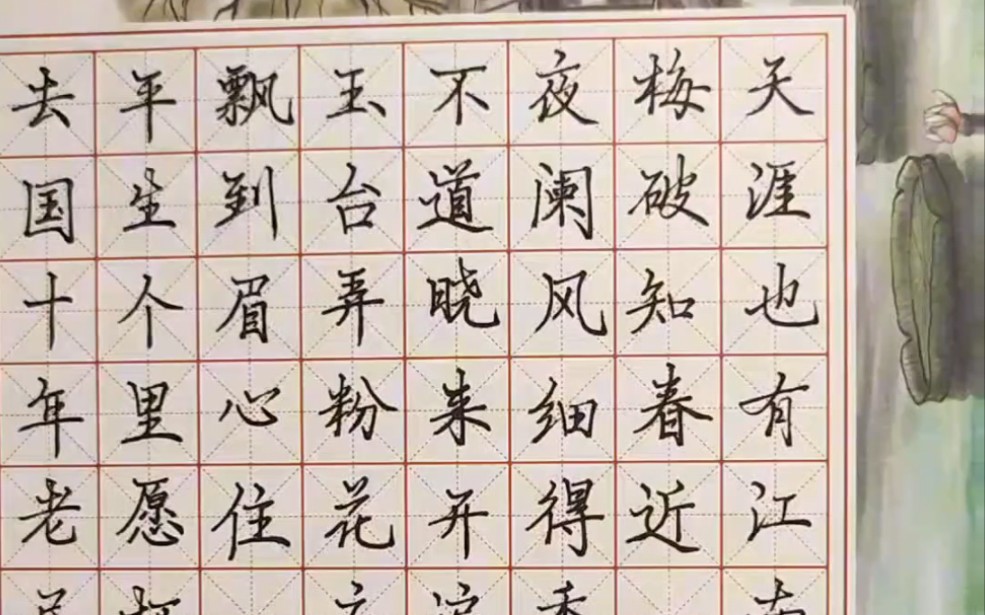 天涯也有江
梅破知春近
夜阑风细得
不道晓来开
玉台弄粉花
飘到眉心住
平生个里愿
去国十年老